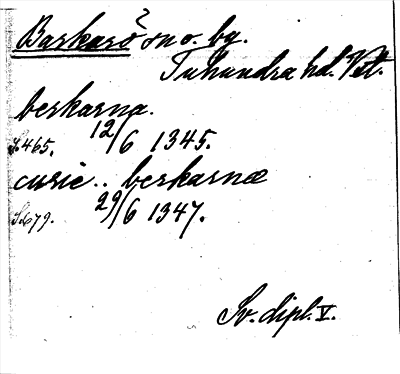 Barkarö sn o. by.
Tuhundra hd. Vstm.
berkarna.
S. 465. 12/6 1345.
curie .. berkarnæ
S. 679. 29/6 1347.
Sv. dipl. V.